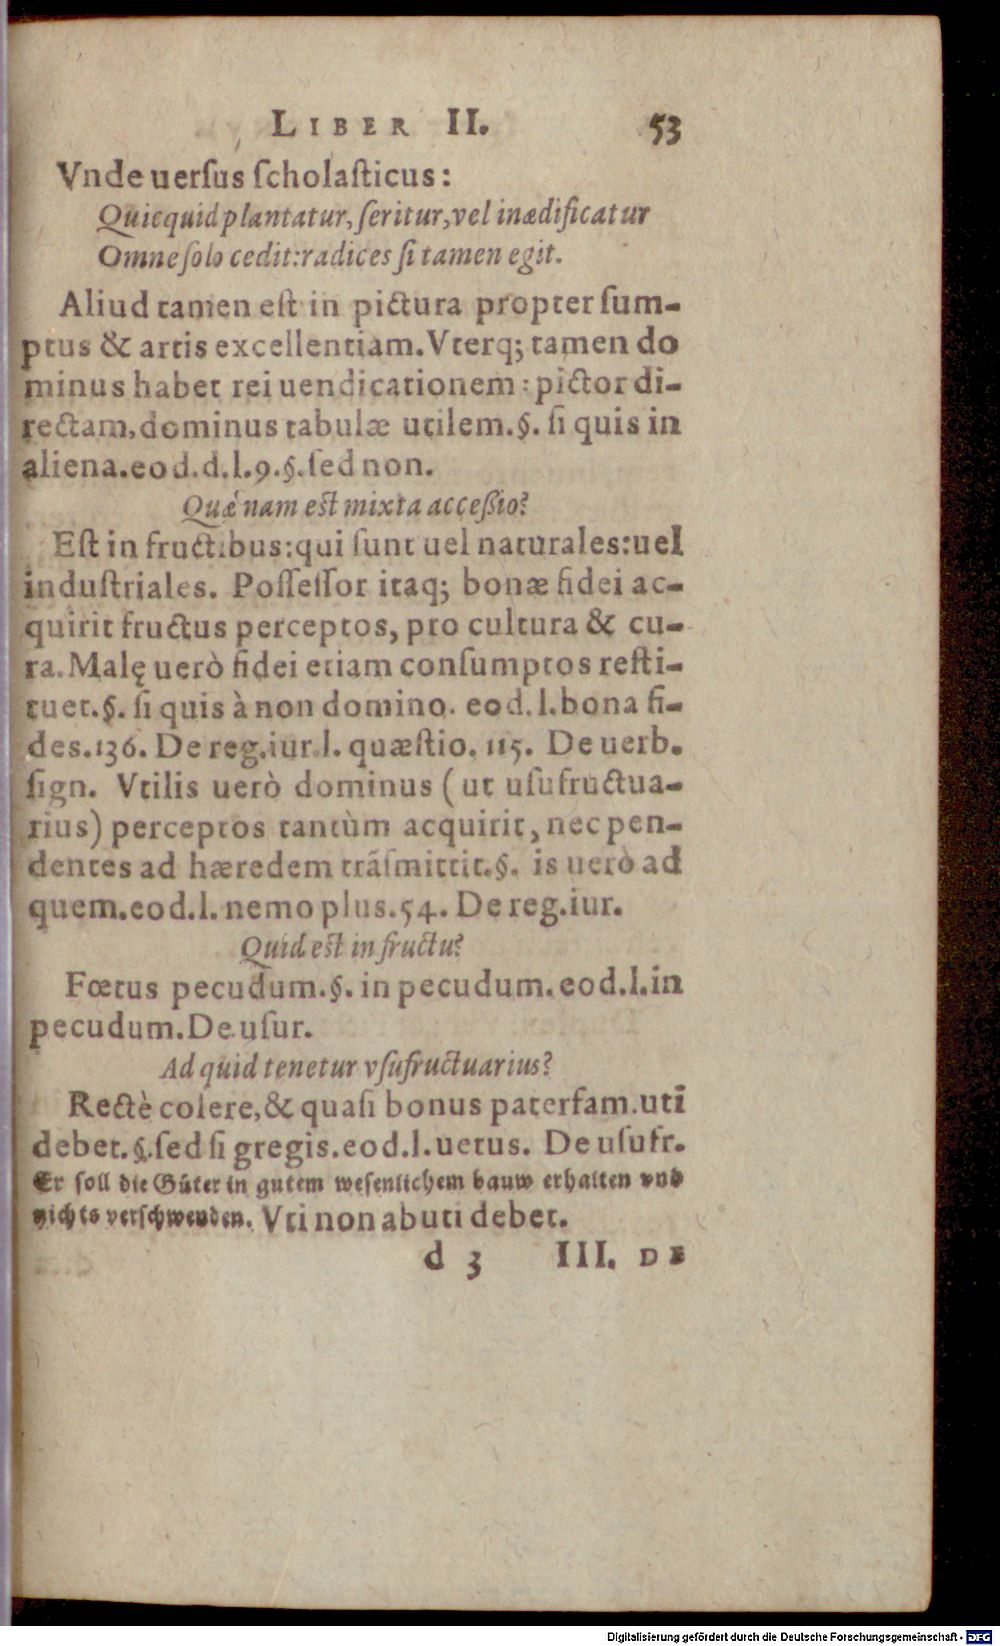 LIBER II. 53
Vnde uerſus ſcholaſticus:
Quicquid plantatur, ſeritur, vel inædificatur
Omne ſolo cedit: radices ſi tamen egit.
Aliud tamen eſt in pictura propter ſum-
ptus & artis excellentiam. Vterq; tamen do
minus habet rei uendicationem: pictor di-
rectam, dominus tabulæ utilem. §. ſi quis in
aliena. eod. d. l. 9. §. ſed non.
Quæ nam est mixta acceßio?
Eſt in fructibus: qui ſunt uel naturales: uel
induſtriales. Poſſeſſor itaq; bonæ fidei ac-
quirit fructus perceptos, pro cultura & cu-
ra. Malę uerò fidei etiam conſumptos reſti-
tuet. §. ſi quis à non domino. eod. l. bona fi-
des. 136. De reg. iur. l. quæſtio. 115. De uerb.
ſign. Vtilis uerò dominus (ut uſufructua-
rius) perceptos tantùm acquirit, nec pen-
dentes ad hæredem trãſmittit. §. is uerò ad
quem. eod. l. nemo plus. 54. De reg. iur.
Quid est in fructu?
Fœtus pecudum. §. in pecudum. eod. l. in
pecudum. De uſur.
Ad quid tenetur vſufructuarius?
Rectè colere, & quaſi bonus paterfam. uti
debet. §. ſed ſi gregis. eod. l. uetus. De uſufr.
Er ſoll die Gůter in gutem weſenlichem bauw erhalten vnd
nichts verſchwenden. Vti non abuti debet.
d 3 III. DE
Digitalisierung gefördert durch die Deutsche Forschungsgemeinschaft - DFG